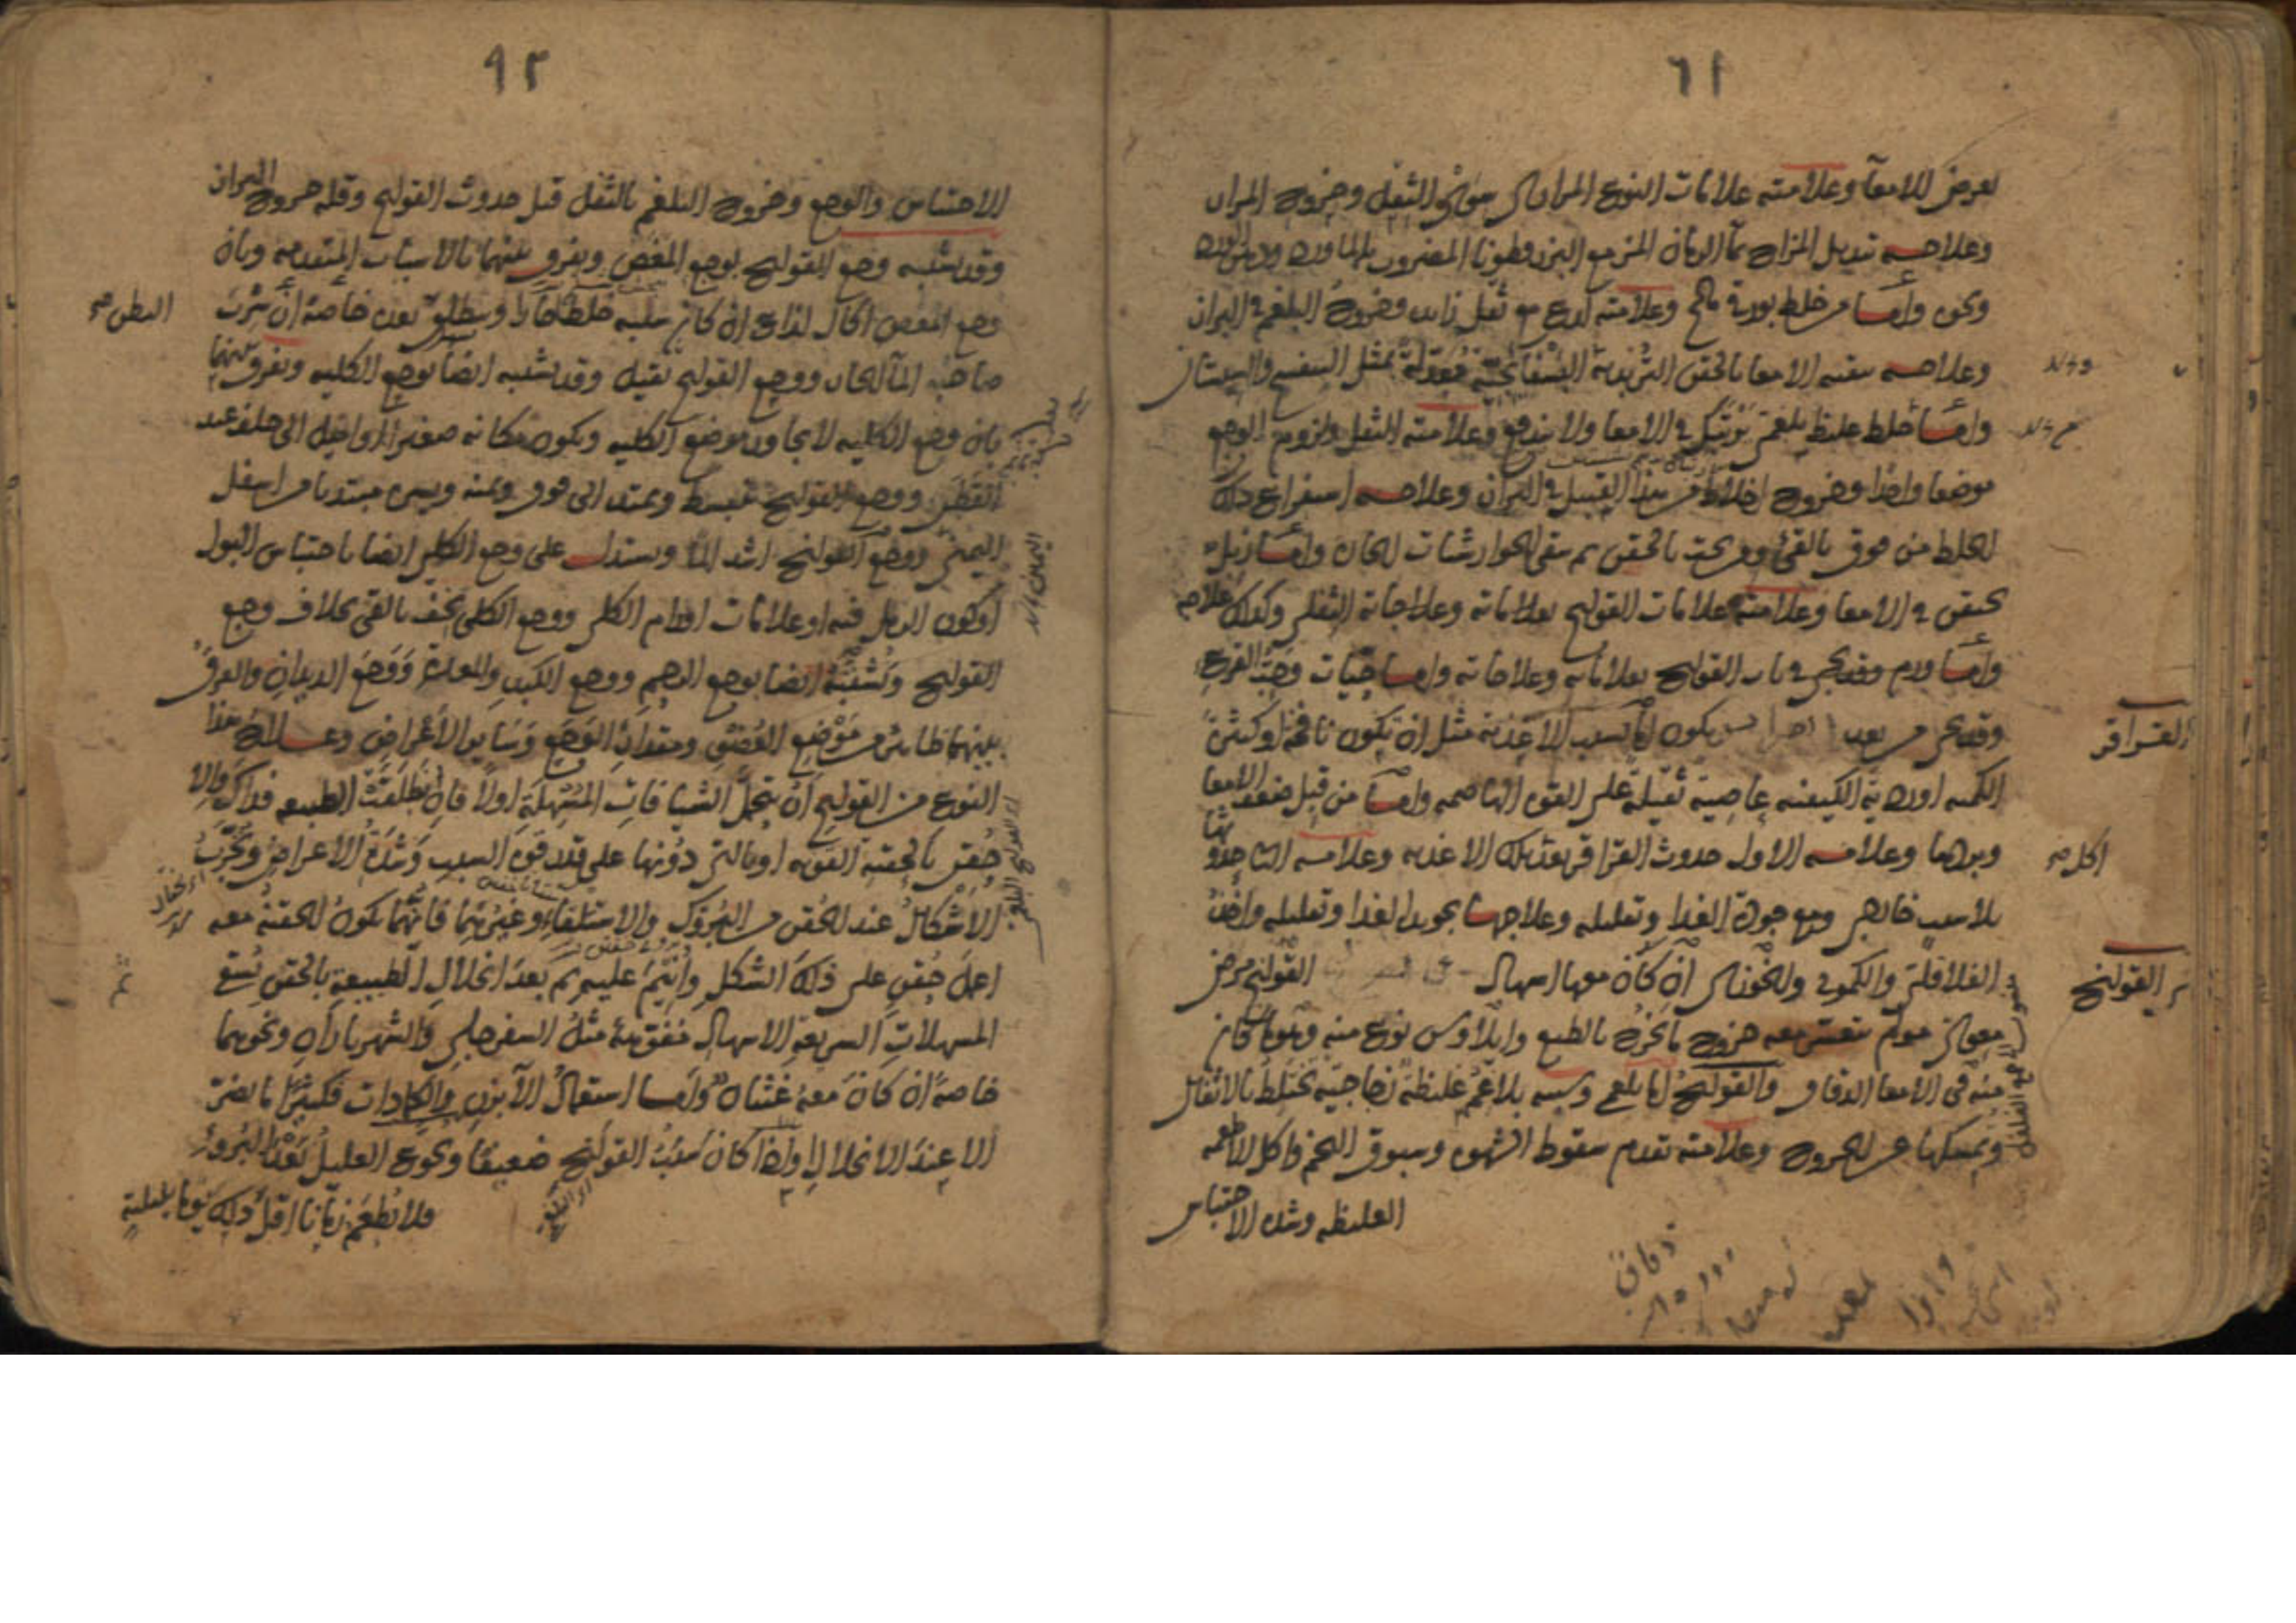 ٦١
يعرض للامعآ وعلامته علامات النوع المرارى سوى الثفل وخروج المرار
وعلاجه تبديل المزاج بمآ الرمان المز مع البزرقطونا المضروب بالماورد ودهن الورد
ونحوه واما من خلط بورقى مالح وعلامته لدع مع ثقل زايد وخروج البلغم فى البراز
وعلاجه تنقيه الامعا بالحقن التربدية البسفايجية معدلة بمثل البنفسج والسبستان
واما خلط غليظ بلغمى يرتبك فى الامعا ولا يندفع وعلامته الثقل ولزوم الوجع
موضعا واحدا وخروج اخلاط من هذا القبيل فى البراز وعلاجه استفراغ ذلك
الخلط من فوق بالقئ ومن تحت بالحقن ثم سقى الجوارشنات الحارة واما زبل
يحتقن فى الامعا وعلامته علامات القولنج بعلاماته وعلاجاته الثفلى وكذلك علاجه
واما ورم وقد يجى فى باب القولنج بعلاماته وعلاجاته واما حيات وحب القرع
وقد يجى من بعد يكون اما بسبب الاغذية مثل ان تكون نافخة او كثيرة
الكميه او ردية الكيفيه عاصية ثقيلة على القوه الهاضمه واما من قبل ضعف الامعا
وبردها وعلامه الاول حدوث القراقر بعد تلك الاغذيه وعلامه الثانى حدوثها
بلا سبب ظاهر ومع جودة الغدا وتقليله وعلاجها تجويد الغدا وتقليله واخذ
الفلافلى والكمونى والخوزى ان كان معها اسهال القولنج مرض
معوى مولم يتعسر معه خروج مايخرج بالطبع وايلاوس نوع منه وهو ما كان
منه فى الامعا الدقاق والقولنج اما بلغمى وسببه بلاغم غليظة زجاجية تختلط بالاثفال
وتمسكها عن الخروج وعلامته تقدم سقوط الشهوه وسبوق التخم واكل الاطعمه
الغليظه وشده الاحتباس
القراقر
اكل صح
القولنج
٩٢
الاحتباس والوجع وخروج البلغم بالثفل قبل حدوث القولنج وقله خروج البراز
وقد يشبه وجع القولنج بوجع المغص ويفرق بينهما بالاسباب المتقدمه وبان
وجع المغص اكال لذاع ان كان سببه خلطا حارا وينطلق بعده خاصة ان شرب
صاحبه المآ الحار ووجع القولنج ثقيل وقد يشبه ايضا بوجع الكليه ويفرق بينهما
بان وجع الكليه لا يجاوز موضع الكليه ويكون مكانه صغيرا او اميل الى خلف عند
القطن ووجع القولنج ينبسط ويمتد الى فوق ويمنه ويسره مبتديا من اسفل
اليمنى ووجع القولنج اشد المآ ويستدل على وجع الكلى ايضا باحتباس البول
او كون الرمل فيه او علامات اورام الكلى ووجع الكلى يخف بالقى بخلاف وجع
القولنج ويشتبه ايضا بوجع الرحم ووجع الكبد والمعدة ووجع الديدان والفرق
بينهما ظاهر من موضع العضو ومقدار الوجع وساير الاعراض وعلاج هذا
النوع من القولنج ان يتحمل الشيافات المسهلة اولا فان انطلقت الطبيعه فذاك والا
حقن بالحقنه القويه او بالتى دونها على قدر قوه السبب وشدة الاعراض وتجرب
الاشكال عند الحقن من البروك والاستلقاء وغيرهما فايهما يكون الحقنة معه
اعمل حقن على ذلك الشكل وانيم عليه ثم بعد انحلال الطبيعة بالحقن يسقى
المسهلات السريعة الاسهال مفوهة مثل السفرجلى والشهرياران ونحوهما
خاصة ان كان معه غثيان واما استعمال الآبزن والكمادات فكثيرا ما يضر
الا عند الانحلال واذا كان سبب القولنج ضعيفا ويجوع العليل بعد البروء
فلا يطعم زمانا اقل ذلك يوما بليلة
البطن صح